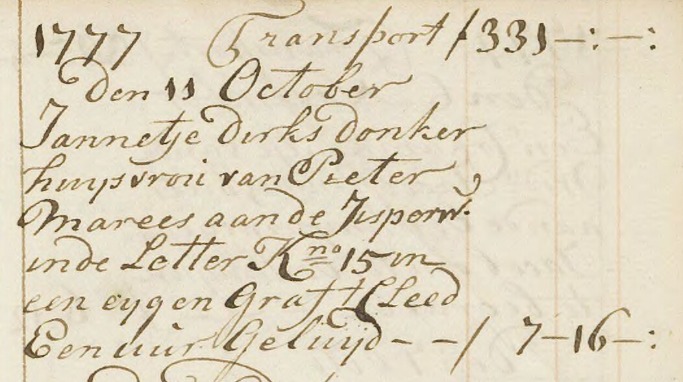 1777 Transport ƒ331-:-:
Den 11 October
Jannetje Dirks Donker
huijsvrou van Pieter
Marees aande Jisperw:
inde Letter K no 15 in
een eygen Graft Cleed
Een uur Geluijd - - ƒ 7-16-: